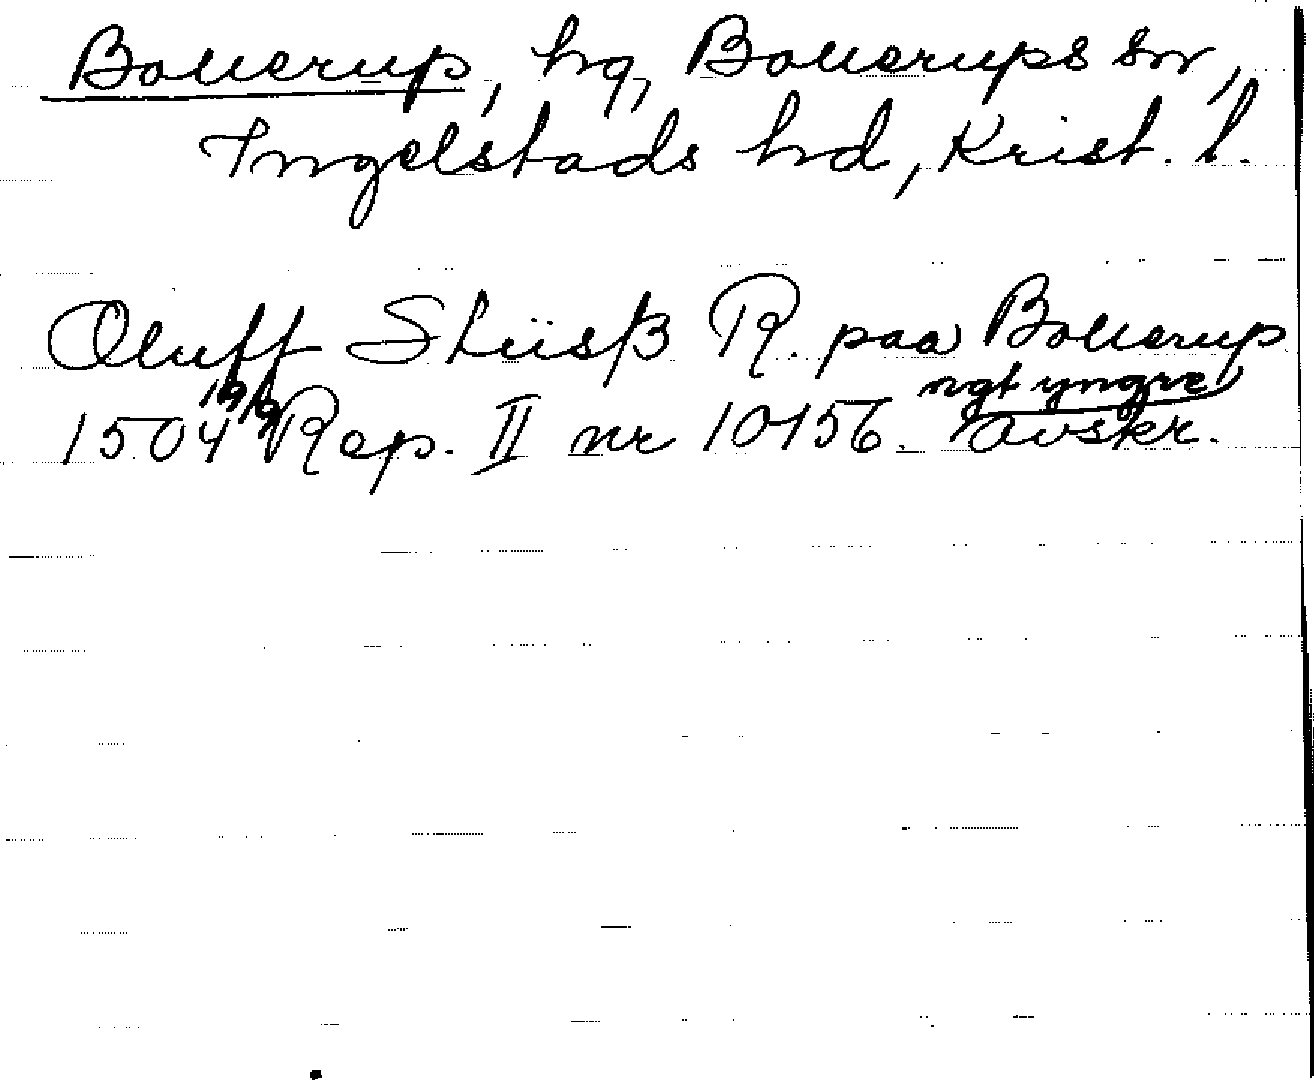 Bollerup, hg, Bollerups sn,
Ingelstads hd, Krist. l.
Oluff Stüsß R. paa Bollerup
1504 19/9 Rep. II nr 10156. ngt yngre avskr.